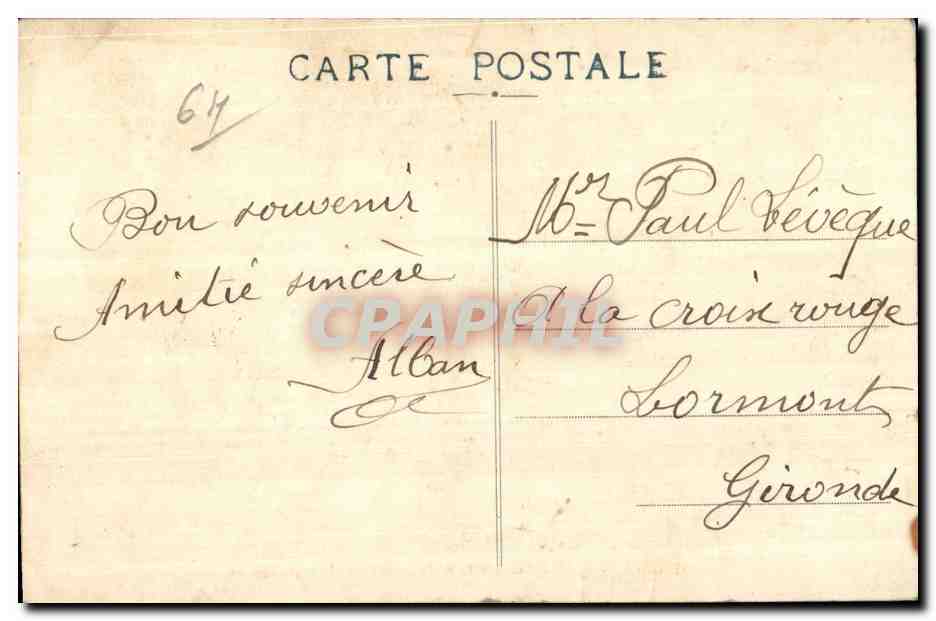 CARTE POSTALE
64
Bon souvenir
Amitié sincère
Alban
Mr Paul Lévèque
A la croix rouge
Lormont
Gironde
CPAPHIL